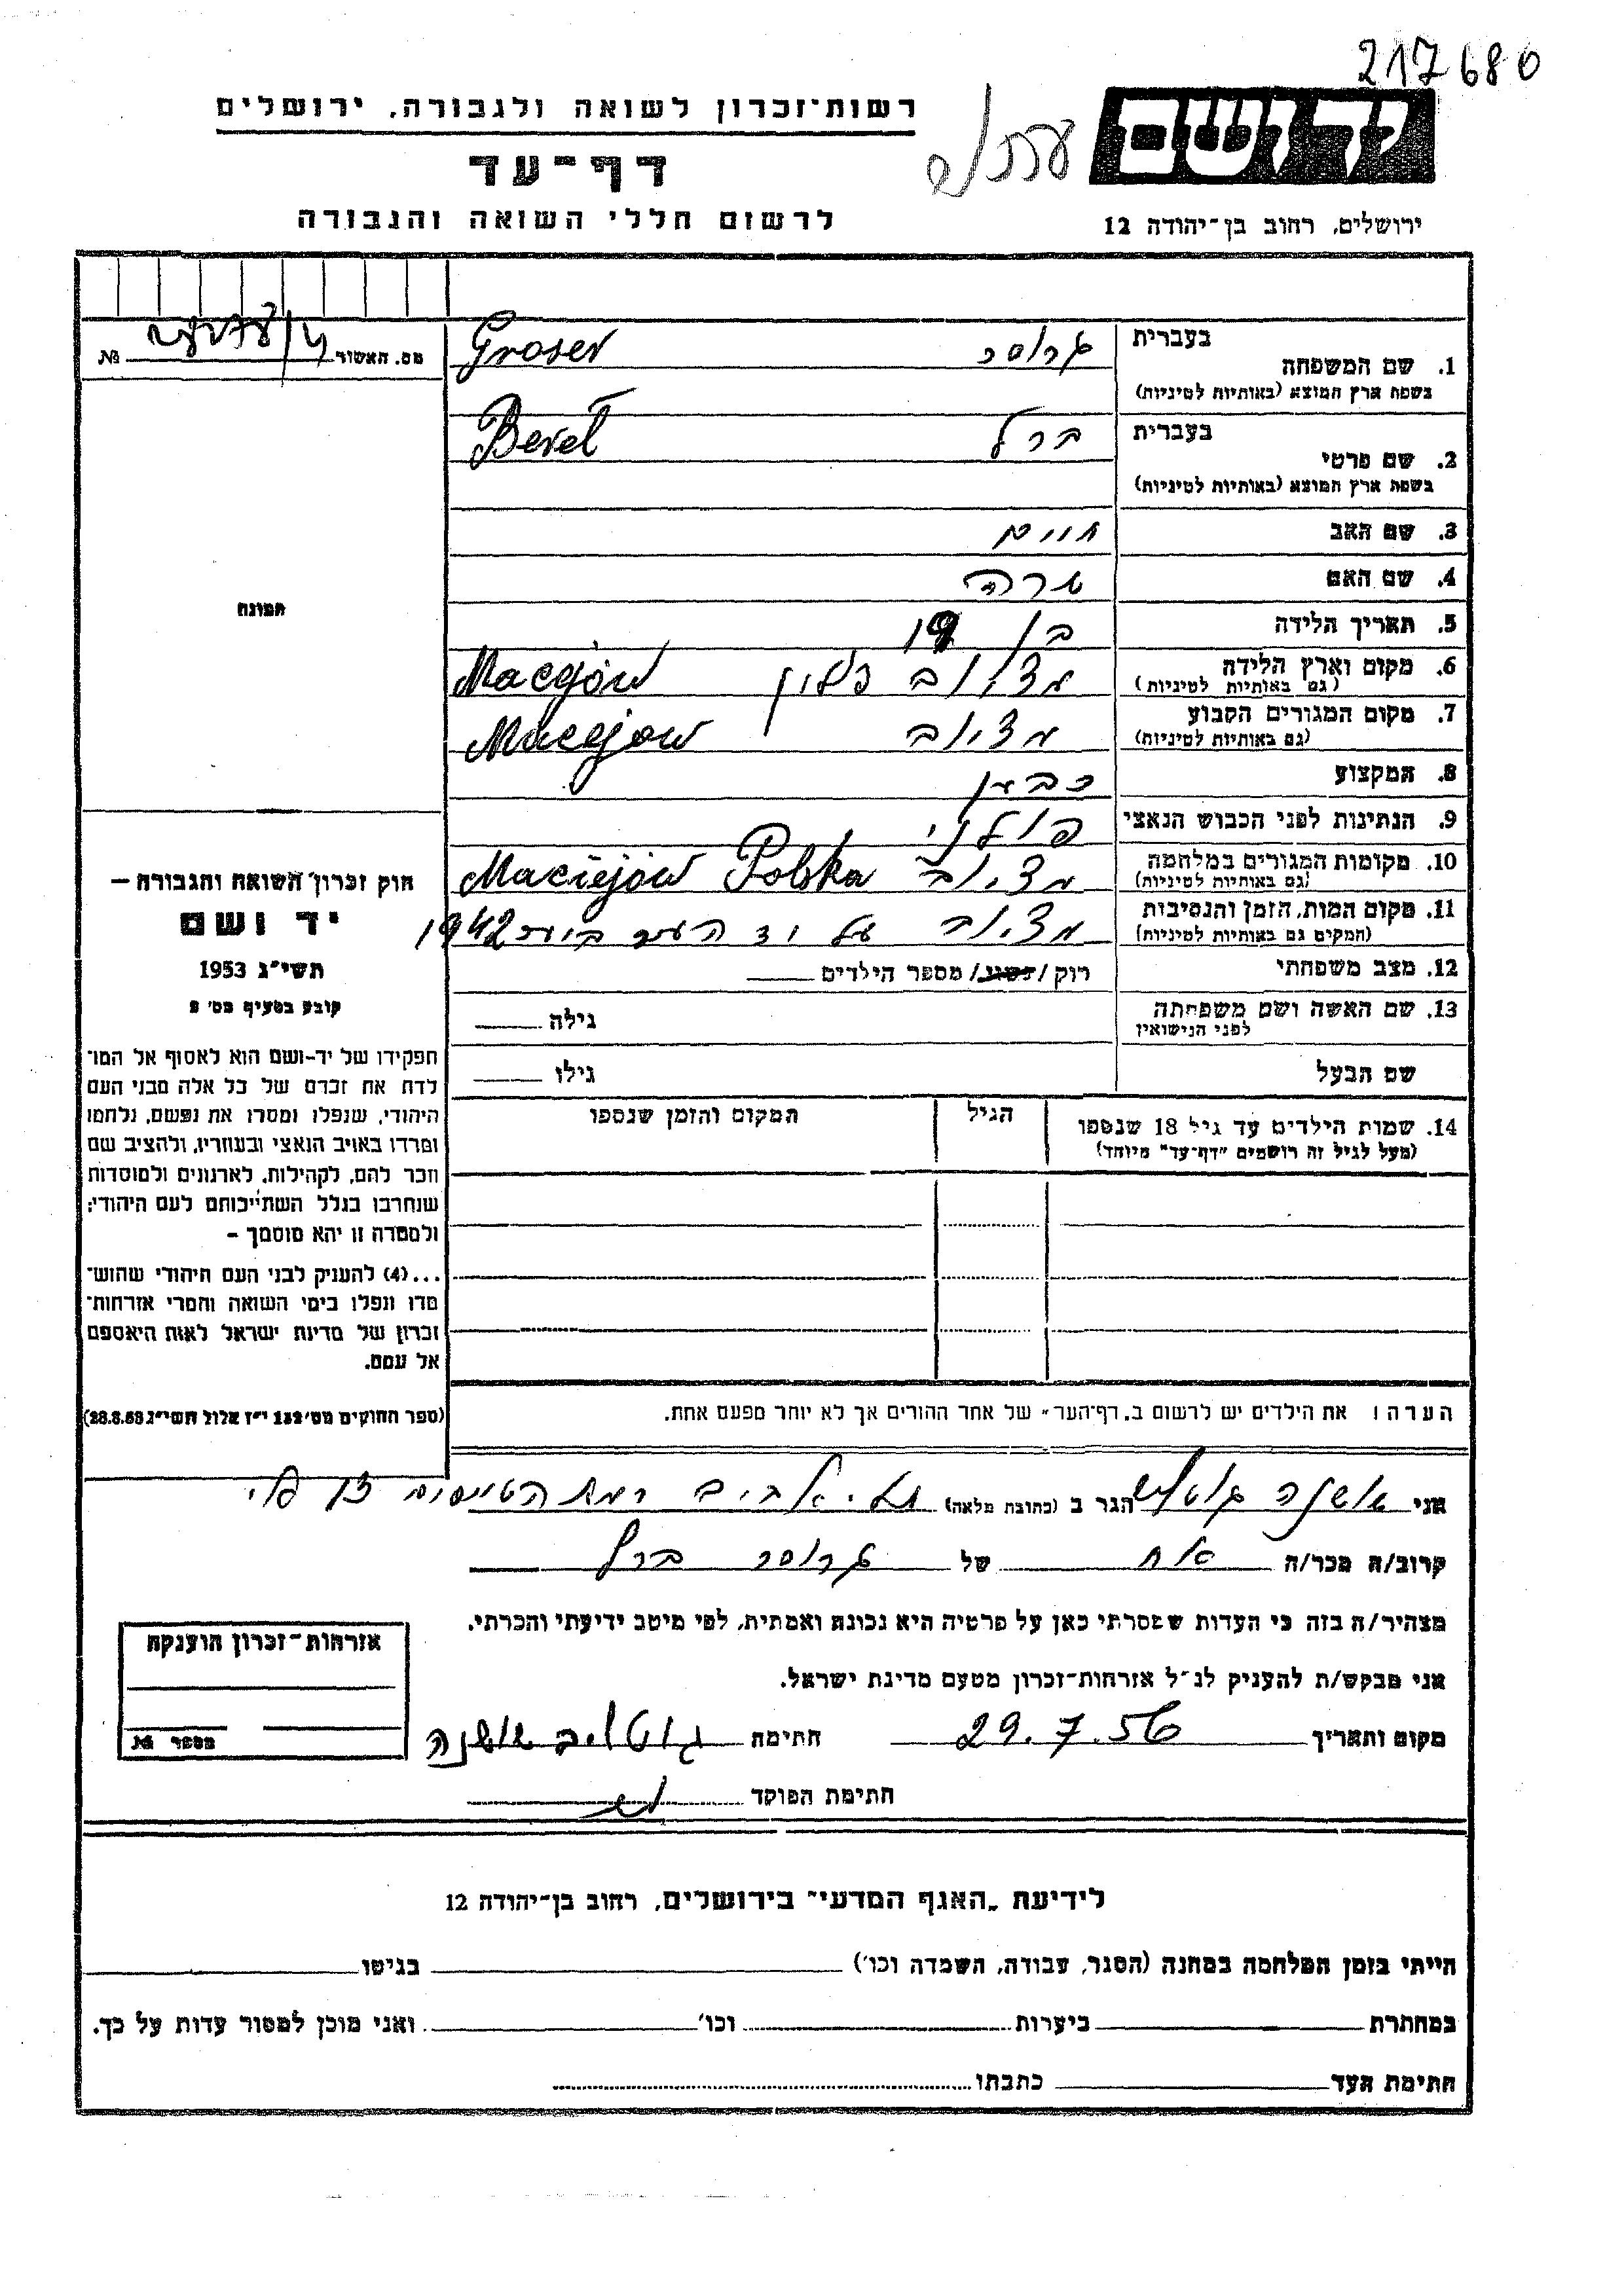 217680
רשות־זכרון לשואה ולגבורה, ירושלים
יד ושם
דף־עד
לרשום חללי השואה והגבורה
ירושלים, רחוב בן־יהודה 12
מס. האשור №
בעברית
1. שם המשפחה
בשפת ארץ המוצא (באותיות לטיניות)
גרוסר Groser
בעברית
2. שם פרטי
בשפת ארץ המוצא (באותיות לטיניות)
ברל Berel
3. שם האב חיים
4. שם האם שרה
5. תאריך הלידה בן 19
6. מקום וארץ הלידה
(גם באותיות לטיניות)
מציוב פולין Maciejów
7. מקום המגורים הקבוע
(גם באותיות לטיניות)
מציוב Maciejow
8. המקצוע
9. הנתינות לפני הכבוש הנאצי פולני
10. מקומות המגורים במלחמה
(גם באותיות לטיניות)
מציוב Maciejów Polska
11. מקום המות, הזמן והנסיבות
(המקים גם באותיות לטיניות)
מציוב על יד העיר 1942
12. מצב משפחתי רוק / נשוי / מספר הילדים
13. שם האשה ושם משפחתה
לפני הנישואין
גילה
שם הבעל גילו
14. שמות הילדים עד גיל 18 שנספו
(מעל לגיל זה רושמים "דף־עד" מיוחד)
הגיל
המקום והזמן שנספו
הערה: את הילדים יש לרשום ב"דף־העד" של אחד ההורים אך לא יותר מפעם אחת.
תמונה
חוק זכרון השואה והגבורה –
יד ושם
תשי"ג 1953
קובע בסעיף מס'
תפקידו של יד-ושם הוא לאסוף אל המו־
לדת את זכרם של כל אלה מבני העם
היהודי, שנפלו ומסרו את נפשם, נלחמו
ומרדו באויב הנאצי ובעוזריו, ולהציב שם
וזכר להם, לקהילות, לארגונים ולמוסדות
שנחרבו בגלל השתייכותם לעם היהודי;
ולמטרה זו יהא מוסמך –
...(4) להעניק לבני העם היהודי שהוש־
מדו ונפלו בימי השואה והמרי אזרחות־
זכרון של מדינת ישראל לאות היאספם
אל עמם.
(ספר החוקים מס' 132 י"ז אלול תשי"ג 28.8.53)
אני שושנה גוטליב הגר ב (כתובת מלאה) תל-אביב רמת הטייסים
קרוב/ה מכר/ה אח של גרוסר ברל
מצהיר/ה בזה כי העדות שמסרתי כאן על פרטיה היא נכונה ואמתית, לפי מיטב ידיעתי והכרתי.
אני מבקש/ת להעניק לנ"ל אזרחות-זכרון מטעם מדינת ישראל.
מקום ותאריך 29.7.56 חתימה גוטליב שושנה
חתימת הפוקד
אזרחות-זכרון הוענקה
מספר №
לידיעת "האגף המדעי" בירושלים, רחוב בן־יהודה 12
הייתי בזמן המלחמה במחנה (הסגר, עבודה, השמדה וכו') בגיטו
במחתרת ביערות וכו' ואני מוכן למסור עדות על כך.
חתימת העד כתבתו